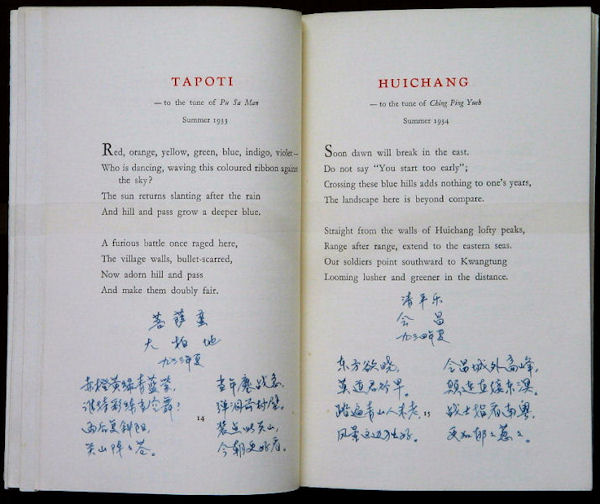 TAPOTI
— to the tune of Pu Sa Man
Summer 1933
Red, orange, yellow, green, blue, indigo, violet—
Who is dancing, waving this coloured ribbon against
the sky?
The sun returns slanting after the rain
And hill and pass grow a deeper blue.
A furious battle once raged here,
The village walls, bullet-scarred,
Now adorn hill and pass
And make them doubly fair.
菩萨蛮
大柏地
九三三年夏
赤橙黄绿青蓝紫,
谁持彩练当空舞?
雨后复斜阳,
关山阵々苍。
当年鏖战急,
弹洞前村壁。
装点此关山,
今朝更好看。
14
HUICHANG
— to the tune of Ching Ping Yueh
Summer 1934
Soon dawn will break in the east.
Do not say "You start too early";
Crossing these blue hills adds nothing to one's years,
The landscape here is beyond compare.
Straight from the walls of Huichang lofty peaks,
Range after range, extend to the eastern seas.
Our soldiers point southward to Kwangtung
Looming lusher and greener in the distance.
清平乐
会昌
九三四年夏
东方欲晓,
莫道君行早。
踏遍青山人未老,
风景这边独好。
会昌城外高峰,
颠连直接东溟。
战士指看南粤,
更加郁々葱々。
15